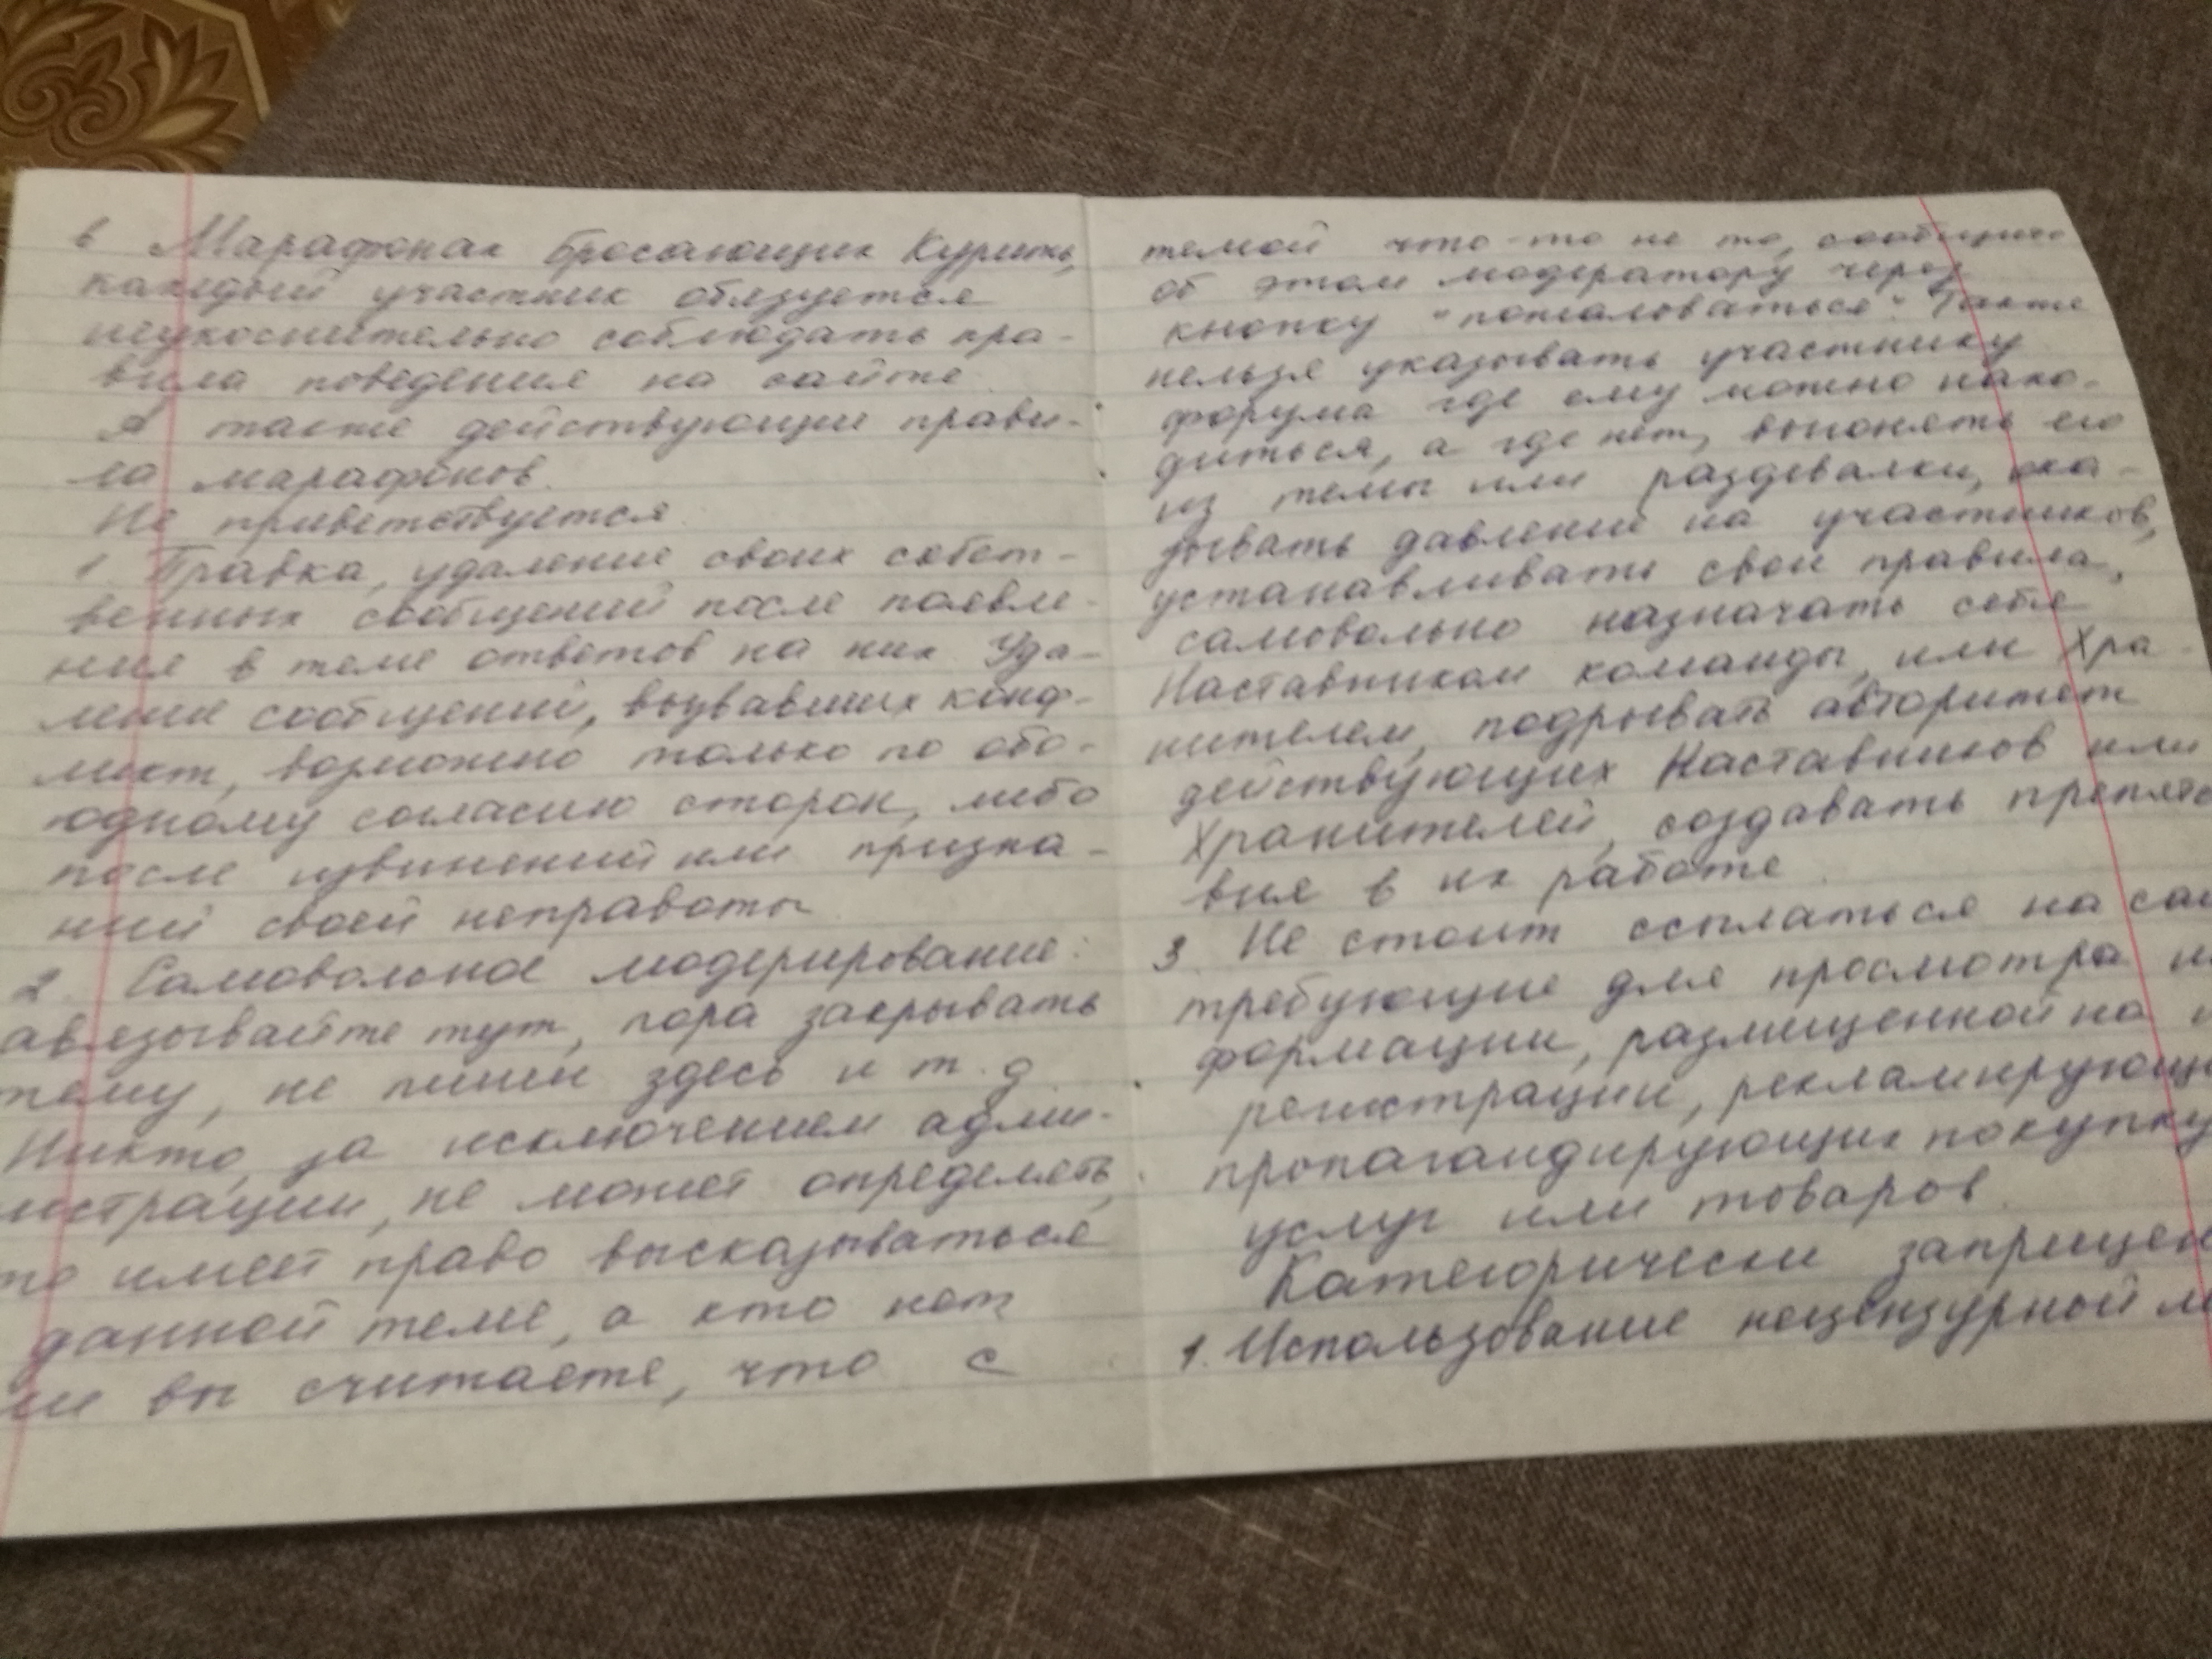 в Марафонах бросающих Курить,
каждый участник обязуется
неукоснительно соблюдать пра-
вила поведения на сайте
А также действующие прави-
ла марафонов.
Не приветствуется
1. Правка, удаление своих собст-
венных сообщений после появле-
ния в теме ответов на них. Уда-
ление сообщений, вызвавших конф-
ликт, возможно только по обо-
юдному согласию сторон, либо
после извинений или призна-
ний своей неправоты
2. Самовольное модерирование:
авязывайте тут, пора закрывать
тему, не пиши здесь и т.д
Никто, за исключением адми-
нистрации, не может определять,
то имеет право высказываться
данной теме, а кто нет
ли вы считаете, что с
темой что-то не то, сообщите
об этом модератору через
кнопку "пожаловаться". Также
нельзя указывать участнику
форума где ему можно нахо-
диться, а где нет, выгонять его
из темы или раздевалки, ока-
зывать давление на участников,
устанавливать свои правила,
самовольно назначать себя
Наставником команды, или Хра-
нителем, подрывать авторитет
действующих Наставников или
Хранителей, создавать препятс
вия в их работе.
3. Не стоит ссылаться на са
требующие для просмотра и
формации, размещенной на н
регистрации, рекламирующ
пропагандирующих покупку
услуг или товаров.
Категорически запрещен
1. Использование нецензурной л